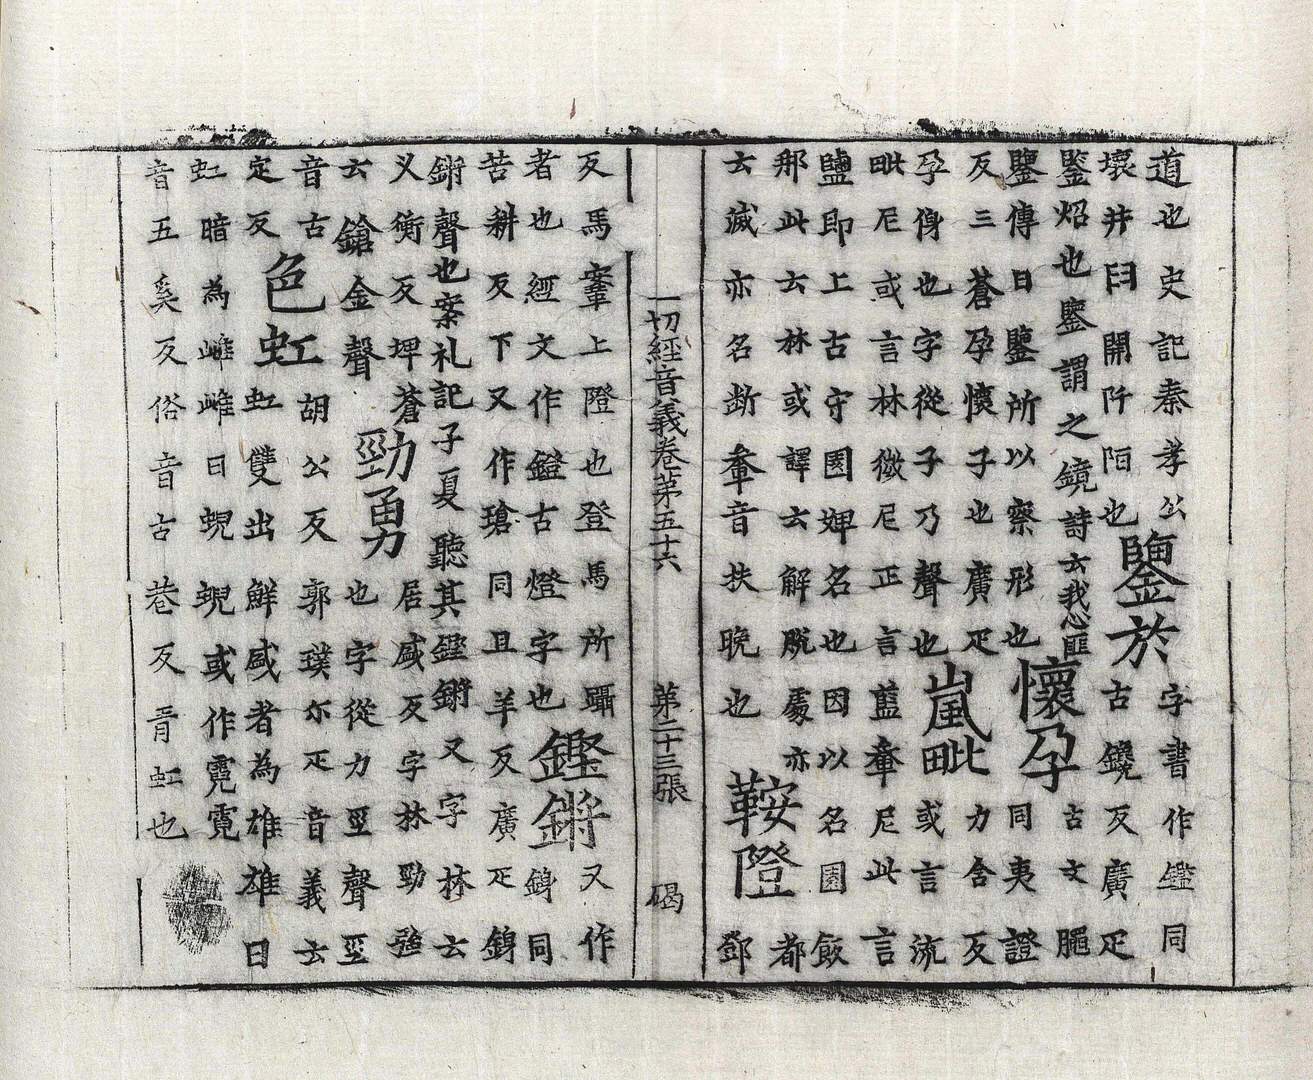 道也史記秦孝公
壞井臼開阡陌也鑿於字書作鑑同
鑒炤也鑒謂之鏡詩云我心匪古鑱反廣疋
鑒傳曰鑒所以察形也懷孕古文䏰同夷證
反三蒼孕懷子也廣疋
孕㑗也字從子乃聲也嵐毗力含反或言流
毗尼或言林微尼正言藍鞤尼此言
鹽即上古守園婢名也因以名園飯
那此云林或譯云解脫處亦
云滅亦名断鞤音扶晚也鞍隥都鄧
一切經音義卷苐五十六 苐二十三張 碣
反馬鞌上隥也登馬所躡
者也經文作鐙古燈字也鏗鏘又作鋗同
苦耕反下又作瑲同且羊反廣疋鋗
鏘聲也案礼記子夏聽其鏗鏘又字林云
义衡反埤蒼
云鎗金聲勁勇居盛反字林勁強
也字從力巠聲巠
音古胡公反郭璞尒疋音義云
定反色虹虹雙出鮮盛者為雄雄曰
虹暗為雌雌曰蜺蜺或作霓霓
音五奚反俗音古巷反青虹也